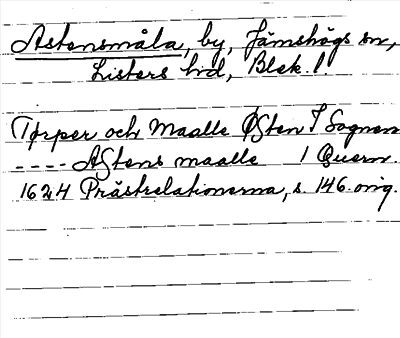 Astensmåla, by, Jämshögs sn,
Listers hd, Blek. l.
Torper och Maalle Østen I Sognen
---- AStens maalle 1 Quern.
1624 Prästrelationerna, s. 146. orig.